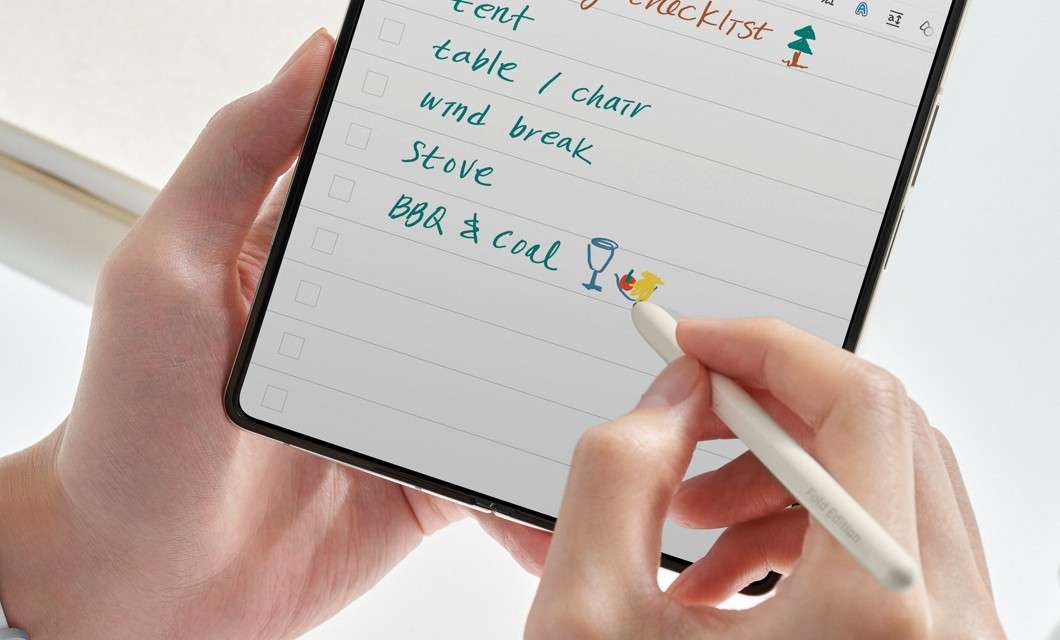 checklist
tent
table / chair
wind break
Stove
BBQ & Coal
Fold Edition